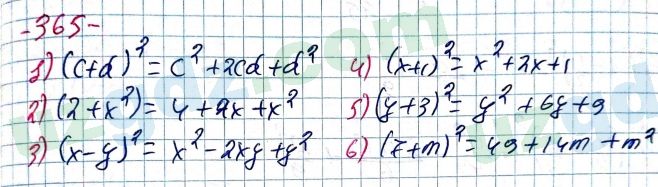 -365-
1) (c+d)² = c² + 2cd + d² 4) (x+1)² = x² + 2x + 1
2) (2 + x²) = 4 + 4x + x² 5) (y+3)² = y² + 6y + 9
3) (x-y)² = x² - 2xy + y² 6) (7+m)² = 49 + 14m + m²